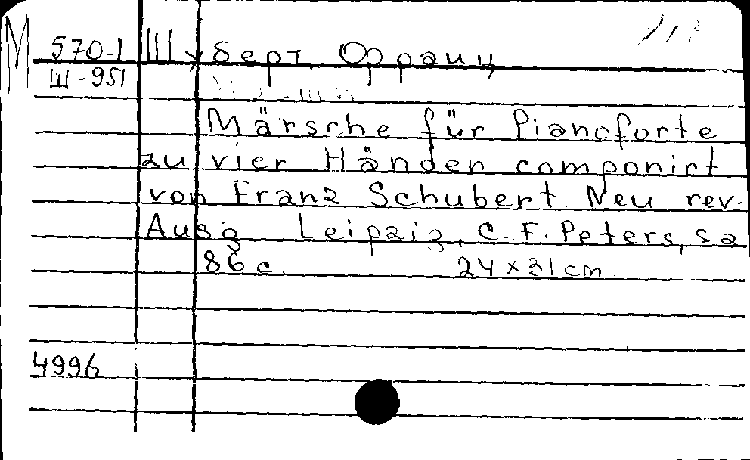 М 570-1 Шуберт, Франц
Ш-951
Märsche für Pianoforte
zu vier Händen componirt
von Franz Schubert Neu rev.
Ausg Leipzig, C. F. Peters, s a
86 c 24 x 31 cm
4996